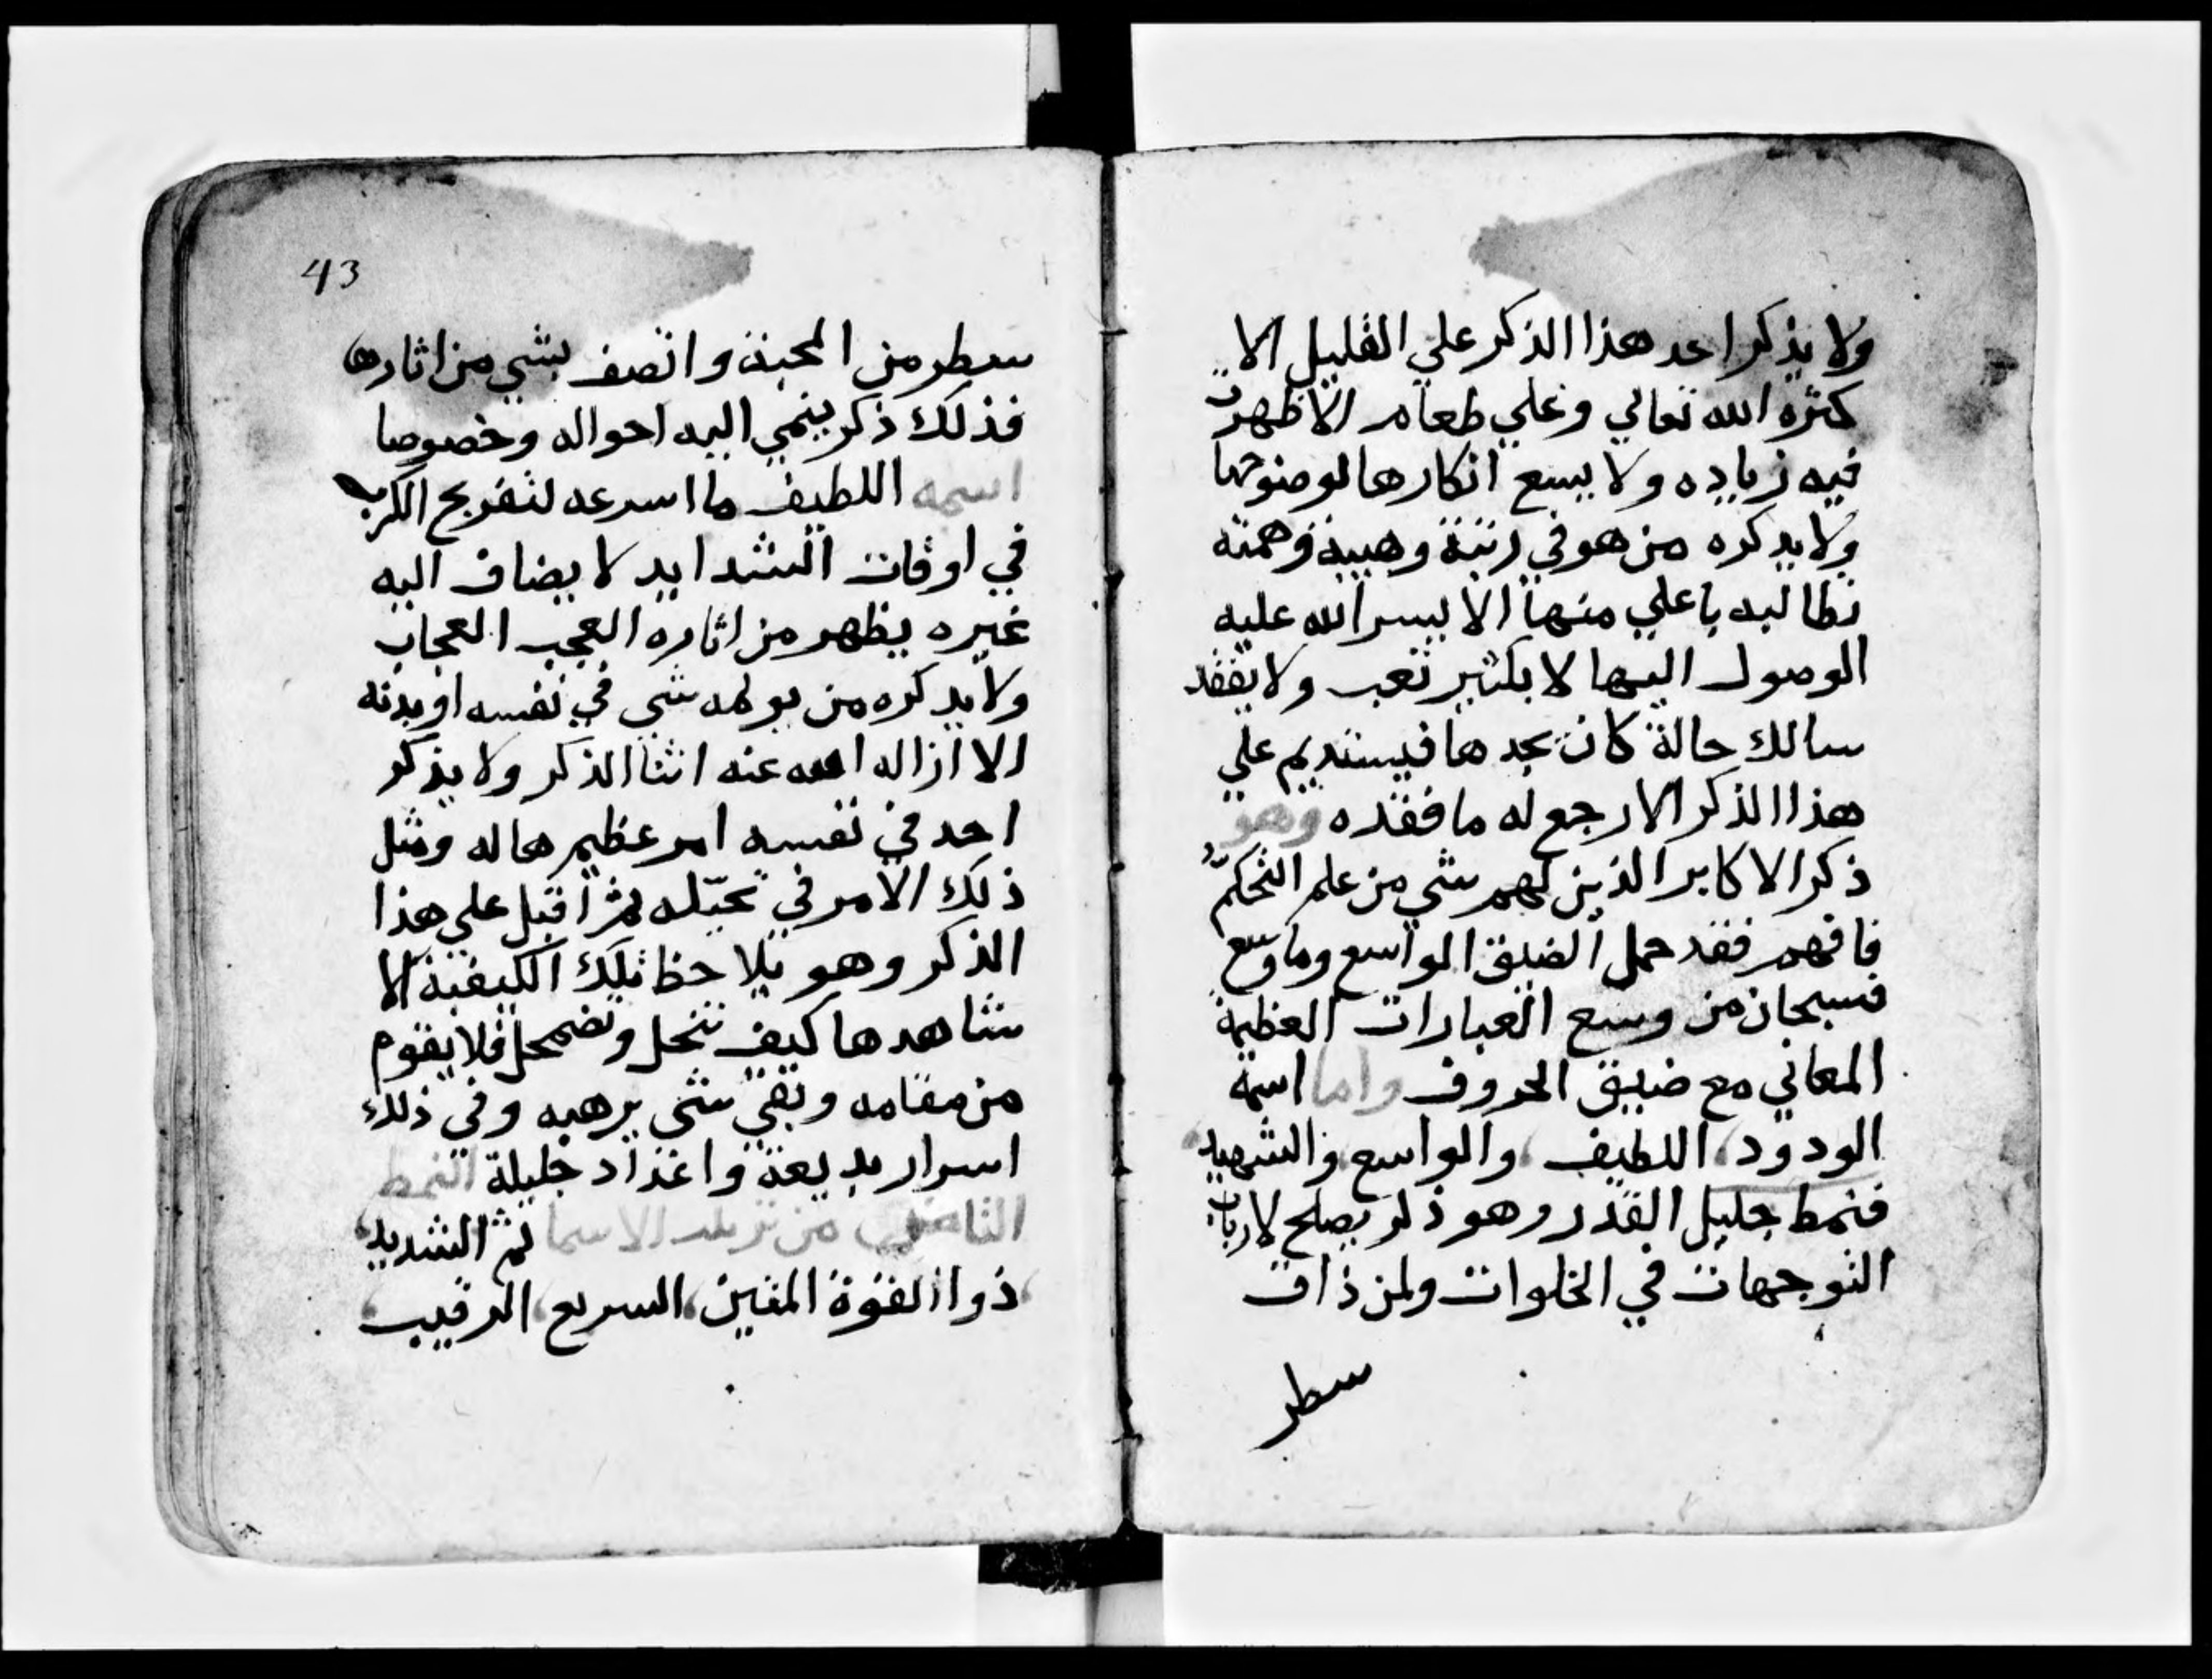 ولا يذكر احد هذا الذكر علي القليل الا
كثره الله تعالي وعلي طعام الا ظهرت
فيه زياده ولا يسع انكارها لوضوحها
ولا يدكره من هو في رتبة وهيبة وهمته
تطالبه باعلي منها الا يسر الله عليه
الوصول اليها لا بكثير تعب ولا يفقد
سالك حالة كان يجدها فيستديم علي
هذا الذكر الا رجع له ما فقده وهو
ذكر الاكابر الذين لهم شي من علم التحكم
فافهم فقد حمل الضيق الواسع وما وسع
فسبحان من وسع العبارات العظيمة
المعاني مع ضيق الحروف واما اسمه
الودود اللطيف والواسع والشهيد
فنمط جليل القدر وهو ذكر يصلح لارباب
التوجهات في الخلوات ولمن ذاق
سطر
43
سطر من المحبة واتصف بشي من اثارها
فذلك ذكر ينمي اليه احواله وخصوصا
اسمه اللطيف ما اسرعه لتفريج الكرب
في اوقات الشدايد لا يضاف اليه
غيره يظهر من اثاره العجب العجاب
ولا يدكره من يولمه شي في نفسه او بدنه
الا ازاله الله عنه اثنا الذكر ولا يذكر
احد في نفسه امر عظيم هاله ومثل
ذلك الامر في تخيّله ثم اقبل علي هذا
الذكر وهو يلاحظ تلك الكيفية الا
شاهدها كيف تنحل وتضمحل فلا يقوم
من مقامه وبقي شي يرهبه وفي ذلك
اسرار بديعة واعداد جليلة النمط
الثامن من الاسما ثم الشديد
ذوا القوة المتين السريع الرقيب